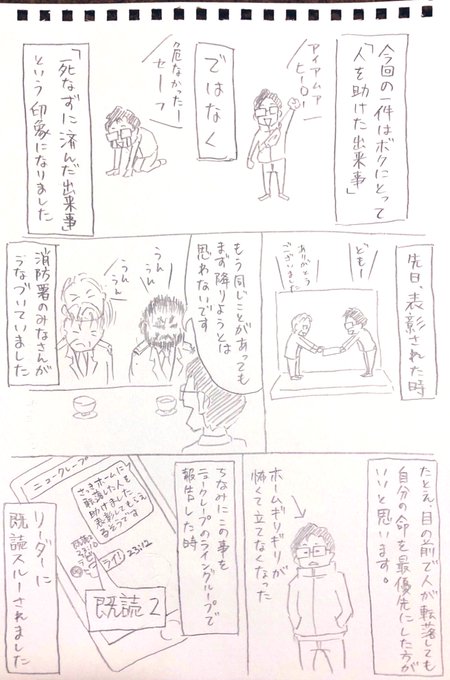 今回の一件はボクにとって
「人を助けた出来事」
アイアムア
ヒーロー
ではなく
危なかったー
セーフ
「死なずに済んだ出来事」
という印象になりました
先日、表彰された時
どもー
ありがとう
ございました
もう同じことがあっても
まず降りようとは
思わないです
うんうん
うんうん
消防署のみなさんが
うなづいていました
たとえ、目の前で人が転落しても
自分の命を最優先にした方が
いいと思います。
ホームギリギリが
怖くて立てなくなった
ちなみにこの事を
ニュークレープの
ライングループで
報告した時
ニュークレープ
さっきホームに
転落した人を
助けました
表彰してもらえ
るそうです
23:12
既読2
リーダーに
既読スルーされました